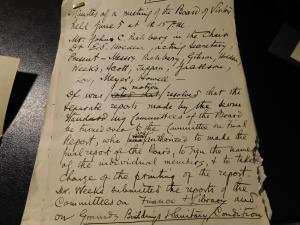 Minutes of a meeting of the Board of Visitors
held June 5 at 15 P.M.
Mr. John C. in the Chair
Dr. acting Secretary,
Present - Messrs. Gibson,
Weeks, Scott, Tappan, Jackson
Meyer, Howell
on motion
It was resolved that the
separate reports made by the seven
Standing Committees of the Board
be turned over to the Committee on Final
Report, who will to make the
final report of the Board, to sign the name
of the individual members, & to take
charge of the printing of the report.
Mr. Weeks submitted the reports of the
Committees on Finance & Library and
on Grounds Buildings & Sanitary Condition